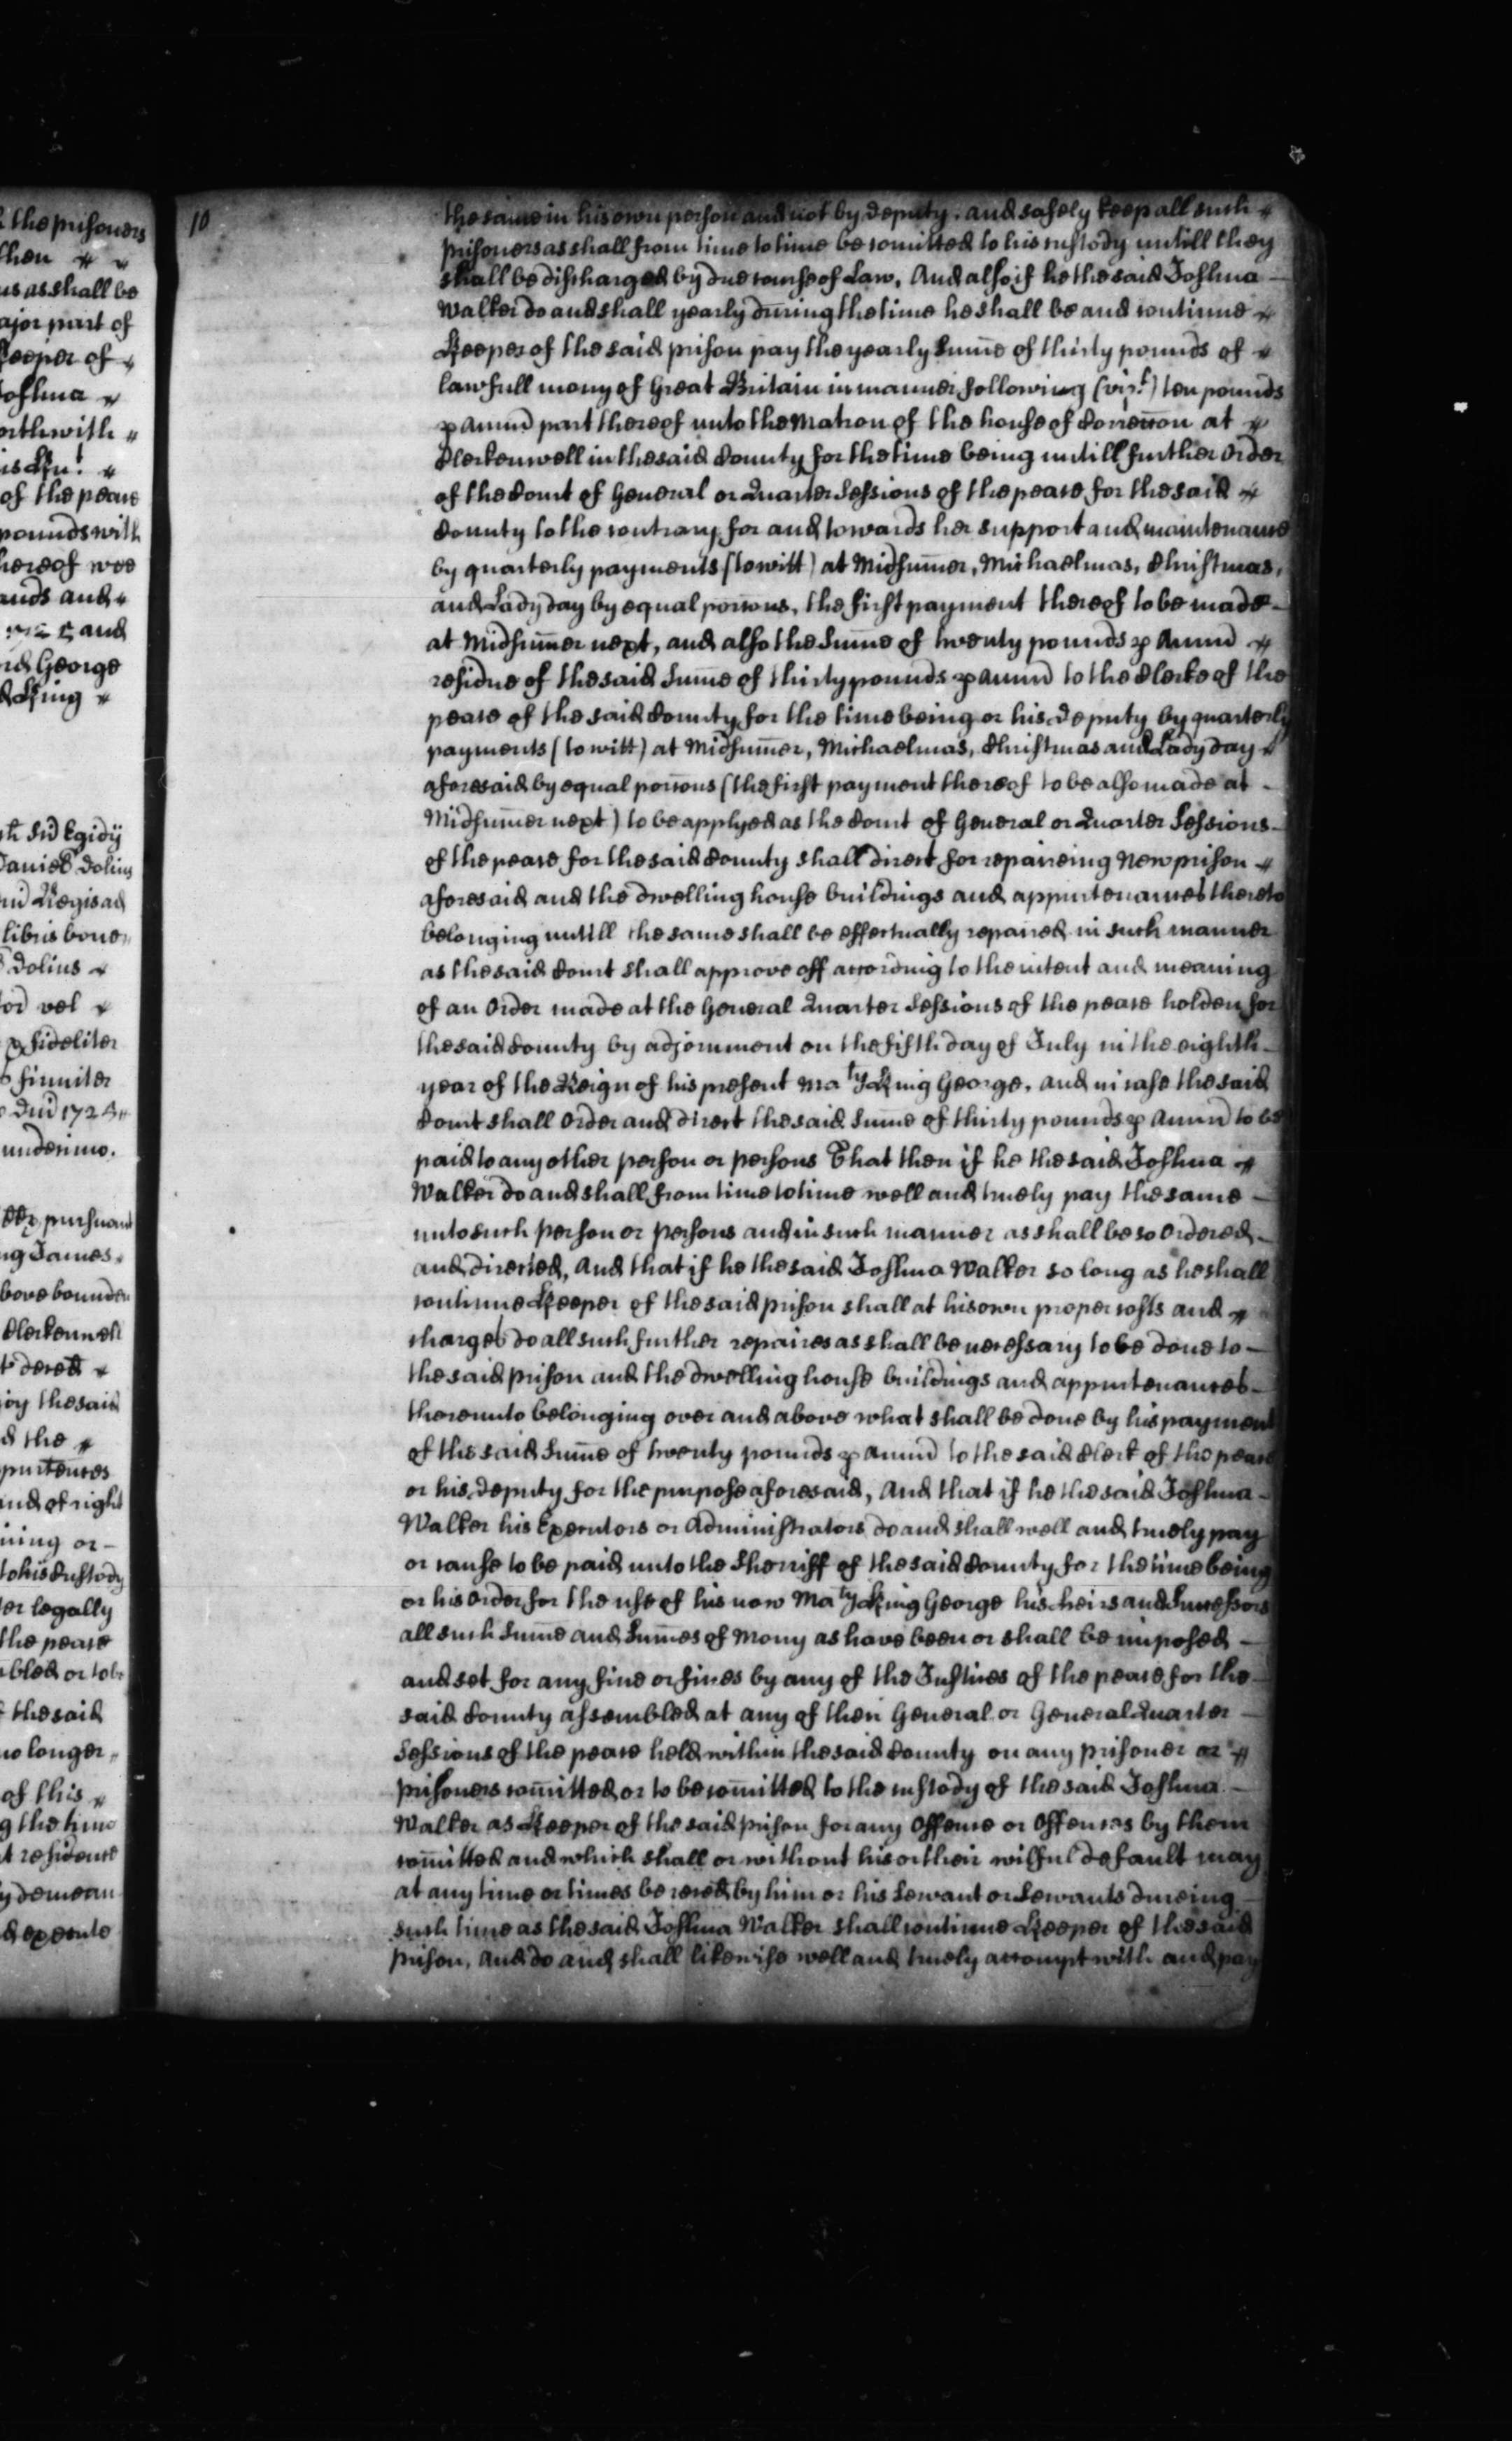 the prisoners
then
us as shall be
ajor part of
Keeper of
Joshua
orthwith
of the peace
pounds with
hereof wee
ands and
and
rd George
King
Egidij
Daniel Dolius
Regis ad
libris bone
Dolius
vel
fideliter
firmiter
Dnī 172
undecimo.
pursuant
ng James
bove bounden
Clerkenwell
joy the said
d the
and of right
ining or
to his Custody
er legally
the peace
bled or to be
the said
no longer
of this
g the time
t residence
y demean
d execute
10
the same in his own person and not by deputy, and safely keep all such
prisoners as shall from time to time be com̄itted to his custody untill they
shall be discharged by due course of Law, And also if he the said Joshua
Walker do and shall yearly during the time he shall be and continue
Keeper of the said prison pay the yearly Sum̄e of thirty pounds of
lawfull mony of Great Britain in manner following (vizt.) ten pounds
p Annū part thereof unto the Matron of the house of Correccōn at
Clerkenwell in the said County for the time being untill further Order
of the Court of General or Quarter Sessions of the peace for the said
County to the contrary for and towards her support and maintenance
by quarterly payments (to witt) at Midsum̄er, Michaelmas, Christmas,
and Lady day by equal porc̄ons, the first payment thereof to be made
at Midsum̄er next, and also the Sum̄e of twenty pounds p Annū
residue of the said Sum̄e of thirty pounds p Annū to the Clerke of the
peace of the said County for the time being or his deputy by quarterly
payments (to witt) at Midsum̄er, Michaelmas, Christmas and Lady day
aforesaid by equal porc̄ons (the first payment thereof to be also made at
Midsum̄er next) to be applyed as the Court of General or Quarter Sessions
of the peace for the said County shall direct for repaireing New prison
aforesaid and the dwelling house buildings and appurtenances thereto
belonging untill the same shall be effectually repaired in such manner
as the said Court shall approve off according to the intent and meaning
of an Order made at the General Quarter Sessions of the peace holden for
the said County by adjornment on the fifth day of July in the eighth
year of the Reign of his present Maty King George, and in case the said
Court shall Order and direct the said Sum̄e of thirty pounds p Annū to be
paid to any other person or persons That then if he the said Joshua
Walker do and shall from time to time well and truely pay the same
unto such person or persons and in such manner as shall be so Ordered
and directed, And that if he the said Joshua Walker so long as he shall
continue Keeper of the said prison shall at his own proper costs and
charges do all such further repaires as shall be necessary to be done to
the said prison and the dwelling house buildings and appurtenances
thereunto belonging over and above what shall be done by his payment
of the said Sum̄e of twenty pounds p annū to the said Clerk of the peace
or his deputy for the purpose aforesaid, And that if he the said Joshua
Walker his Executors or Administrators do and shall well and truely pay
or cause to be paid unto the Sherriff of the said County for the time being
or his Order for the use of his now Maty King George his heirs and Successors
all such Sum̄e and Sum̄es of Mony as have been or shall be imposed
and set for any fine or fines by any of the Justices of the peace for the
said County assembled at any of their General or General Quarter
Sessions of the peace held within the said County on any prisoner or
prisoners com̄itted or to be com̄itted to the custody of the said Joshua
Walker as Keeper of the said prison for any Offence or Offences by them
com̄itted and which shall or without his or their wilful default may
at any time or times be reced by him or his Servant or Servants dureing
such time as the said Joshua Walker shall continue Keeper of the said
prison, And do and shall likewise well and truely accompt with and pay